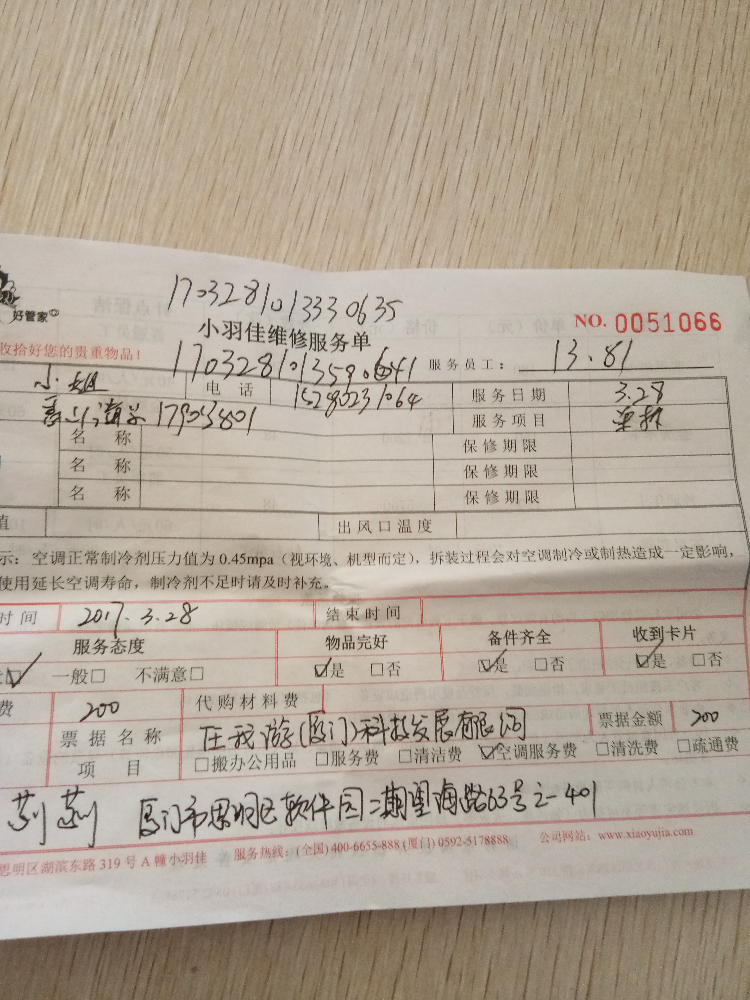 1703281013330635
好管家
小羽佳维修服务单
NO. 0051066
收拾好您的贵重物品！
服务员工： 13.81
小姐 电 话 15280231064 服务日期 3.28
17903801 服务项目
名 称 保修期限
名 称 保修期限
名 称 保修期限
值 出风口温度
示：空调正常制冷剂压力值为 0.45mpa（视环境、机型而定），拆装过程会对空调制冷或制热造成一定影响，
使用延长空调寿命，制冷剂不足时请及时补充。
时间 2017.3.28 结束时间
服务态度 物品完好 备件齐全 收到卡片
一般□ 不满意□ ☑是 □否 ☑是 □否 ☑是 □否
费 200 代购材料费
票据名称 任我游(厦门)科技发展有限公司 票据金额 200
项 目 □搬办公用品 □服务费 □清洁费 ☑空调服务费 □清洗费 □疏通费
厦门市思明区软件园二期望海路63号之一401
思明区湖滨东路 319 号 A 幢小羽佳 服务热线：(全国) 400-6655-888 (厦门) 0592-5178888 公司网站：www.xiaoyujia.com